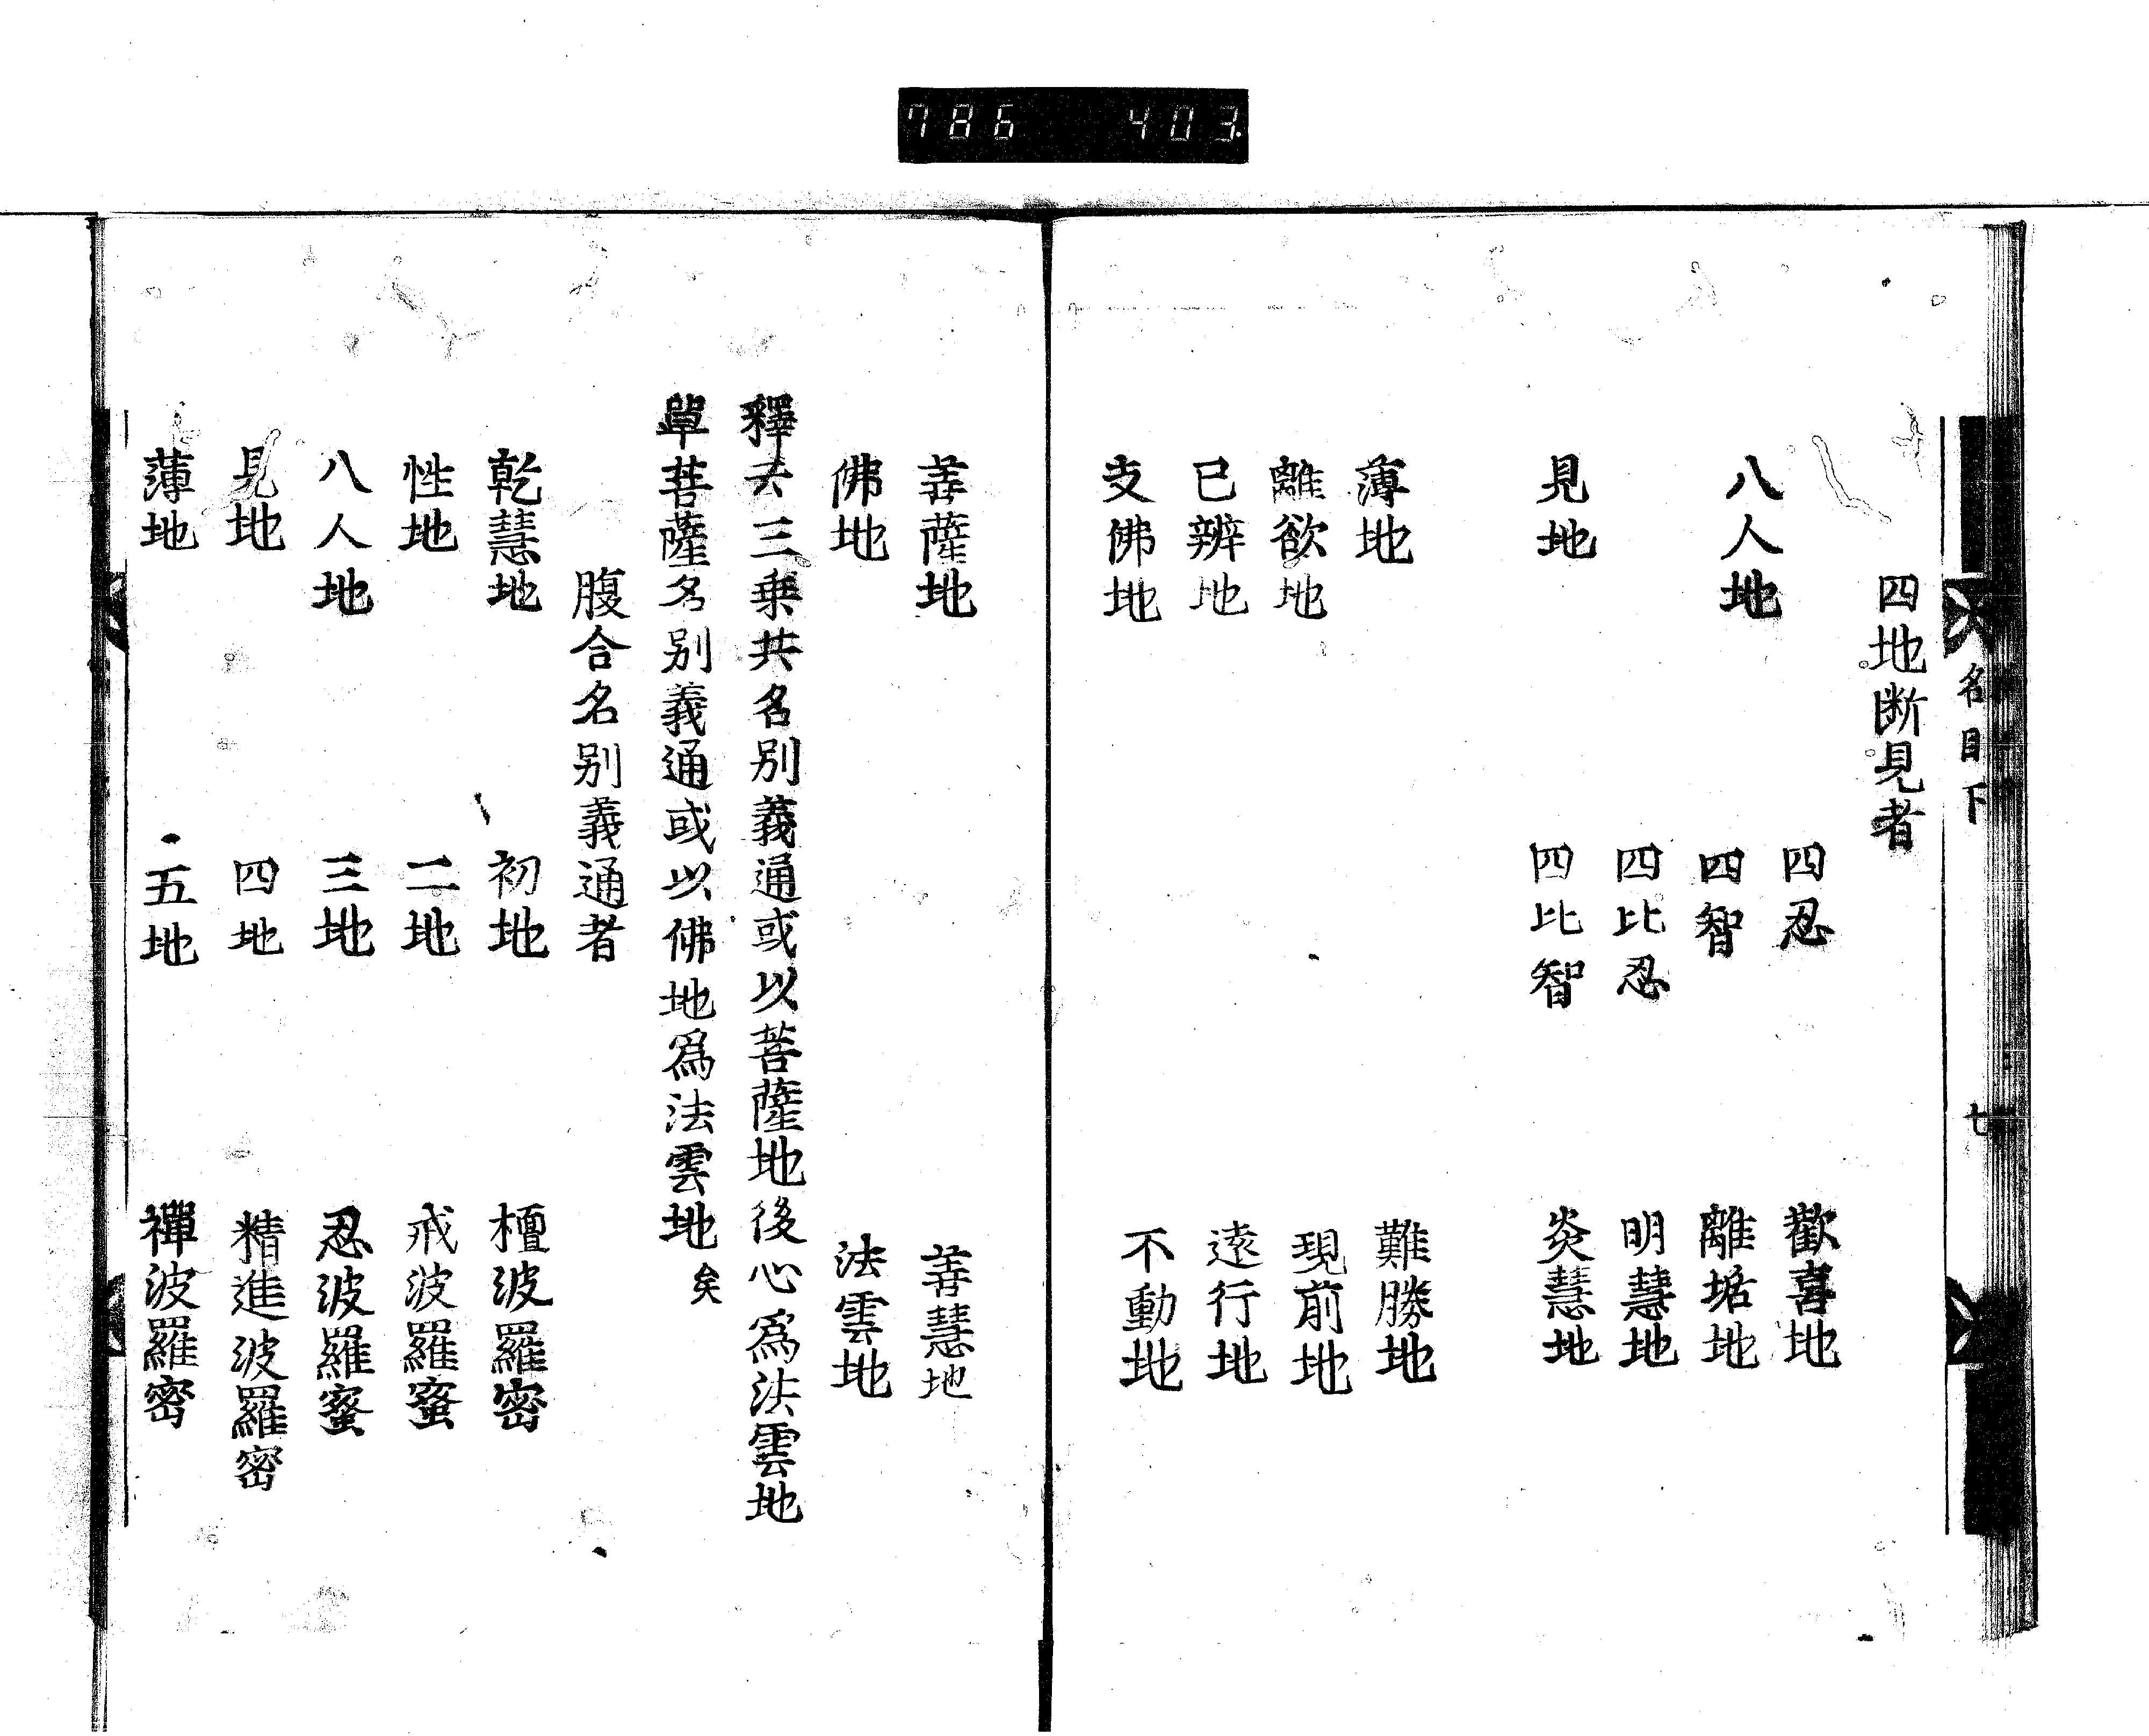 786 403
名目下 七
四地断見者
四忍 歡喜地
八人地 四智 離垢地
四比忍 明慧地
見地 四比智 炎慧地
薄地 難勝地
離欲地 現前地
已辨地 遠行地
支佛地 不動地
菩薩地 善慧地
佛地 法雲地
釋云三乗共名別義通或以菩薩地後心爲法雲地
單菩薩名別義通或以佛地爲法雲地矣
腹合名別義通者
乾慧地 初地 檀波羅密
性地 二地 戒波羅蜜
八人地 三地 忍波羅蜜
見地 四地 精進波羅密
薄地 五地 禪波羅密